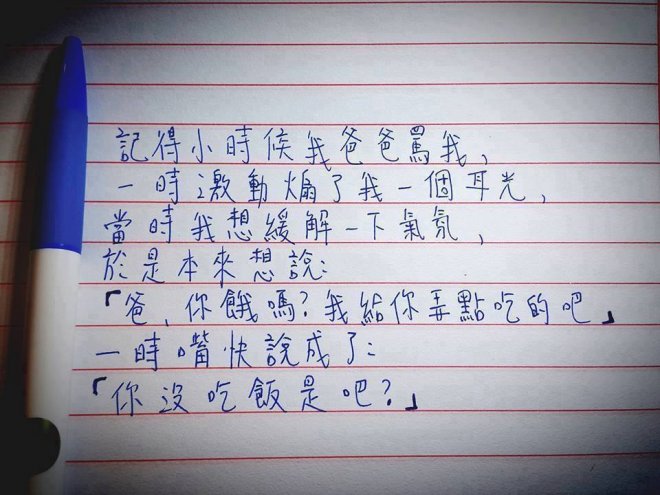 記得小時候我爸爸罵我，
一時激動煽了我一個耳光，
當時我想緩解一下氣氛，
於是本來想說：
「爸，你餓嗎？我給你弄點吃的吧」
一時嘴快說成了：
「你沒吃飯是吧？」